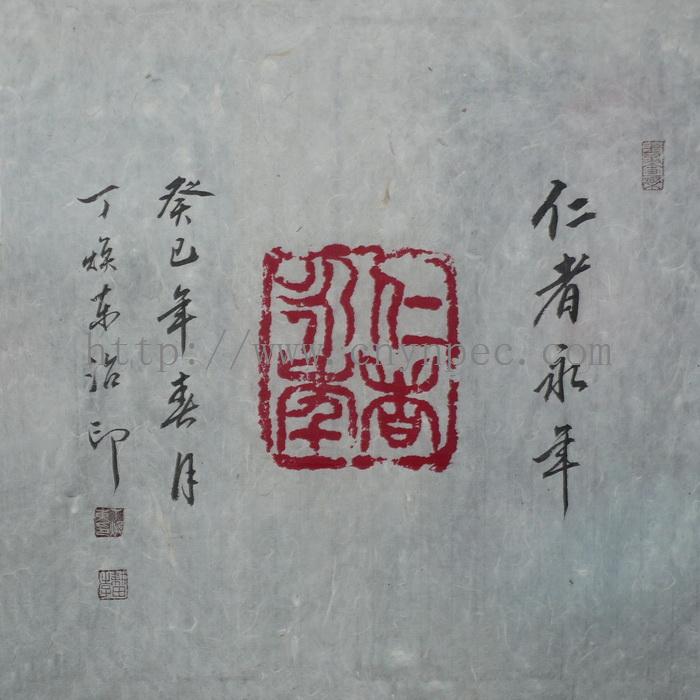 仁者永年
仁者永年
癸巳年春月
丁焕东治印
http://www.cnynpec.com